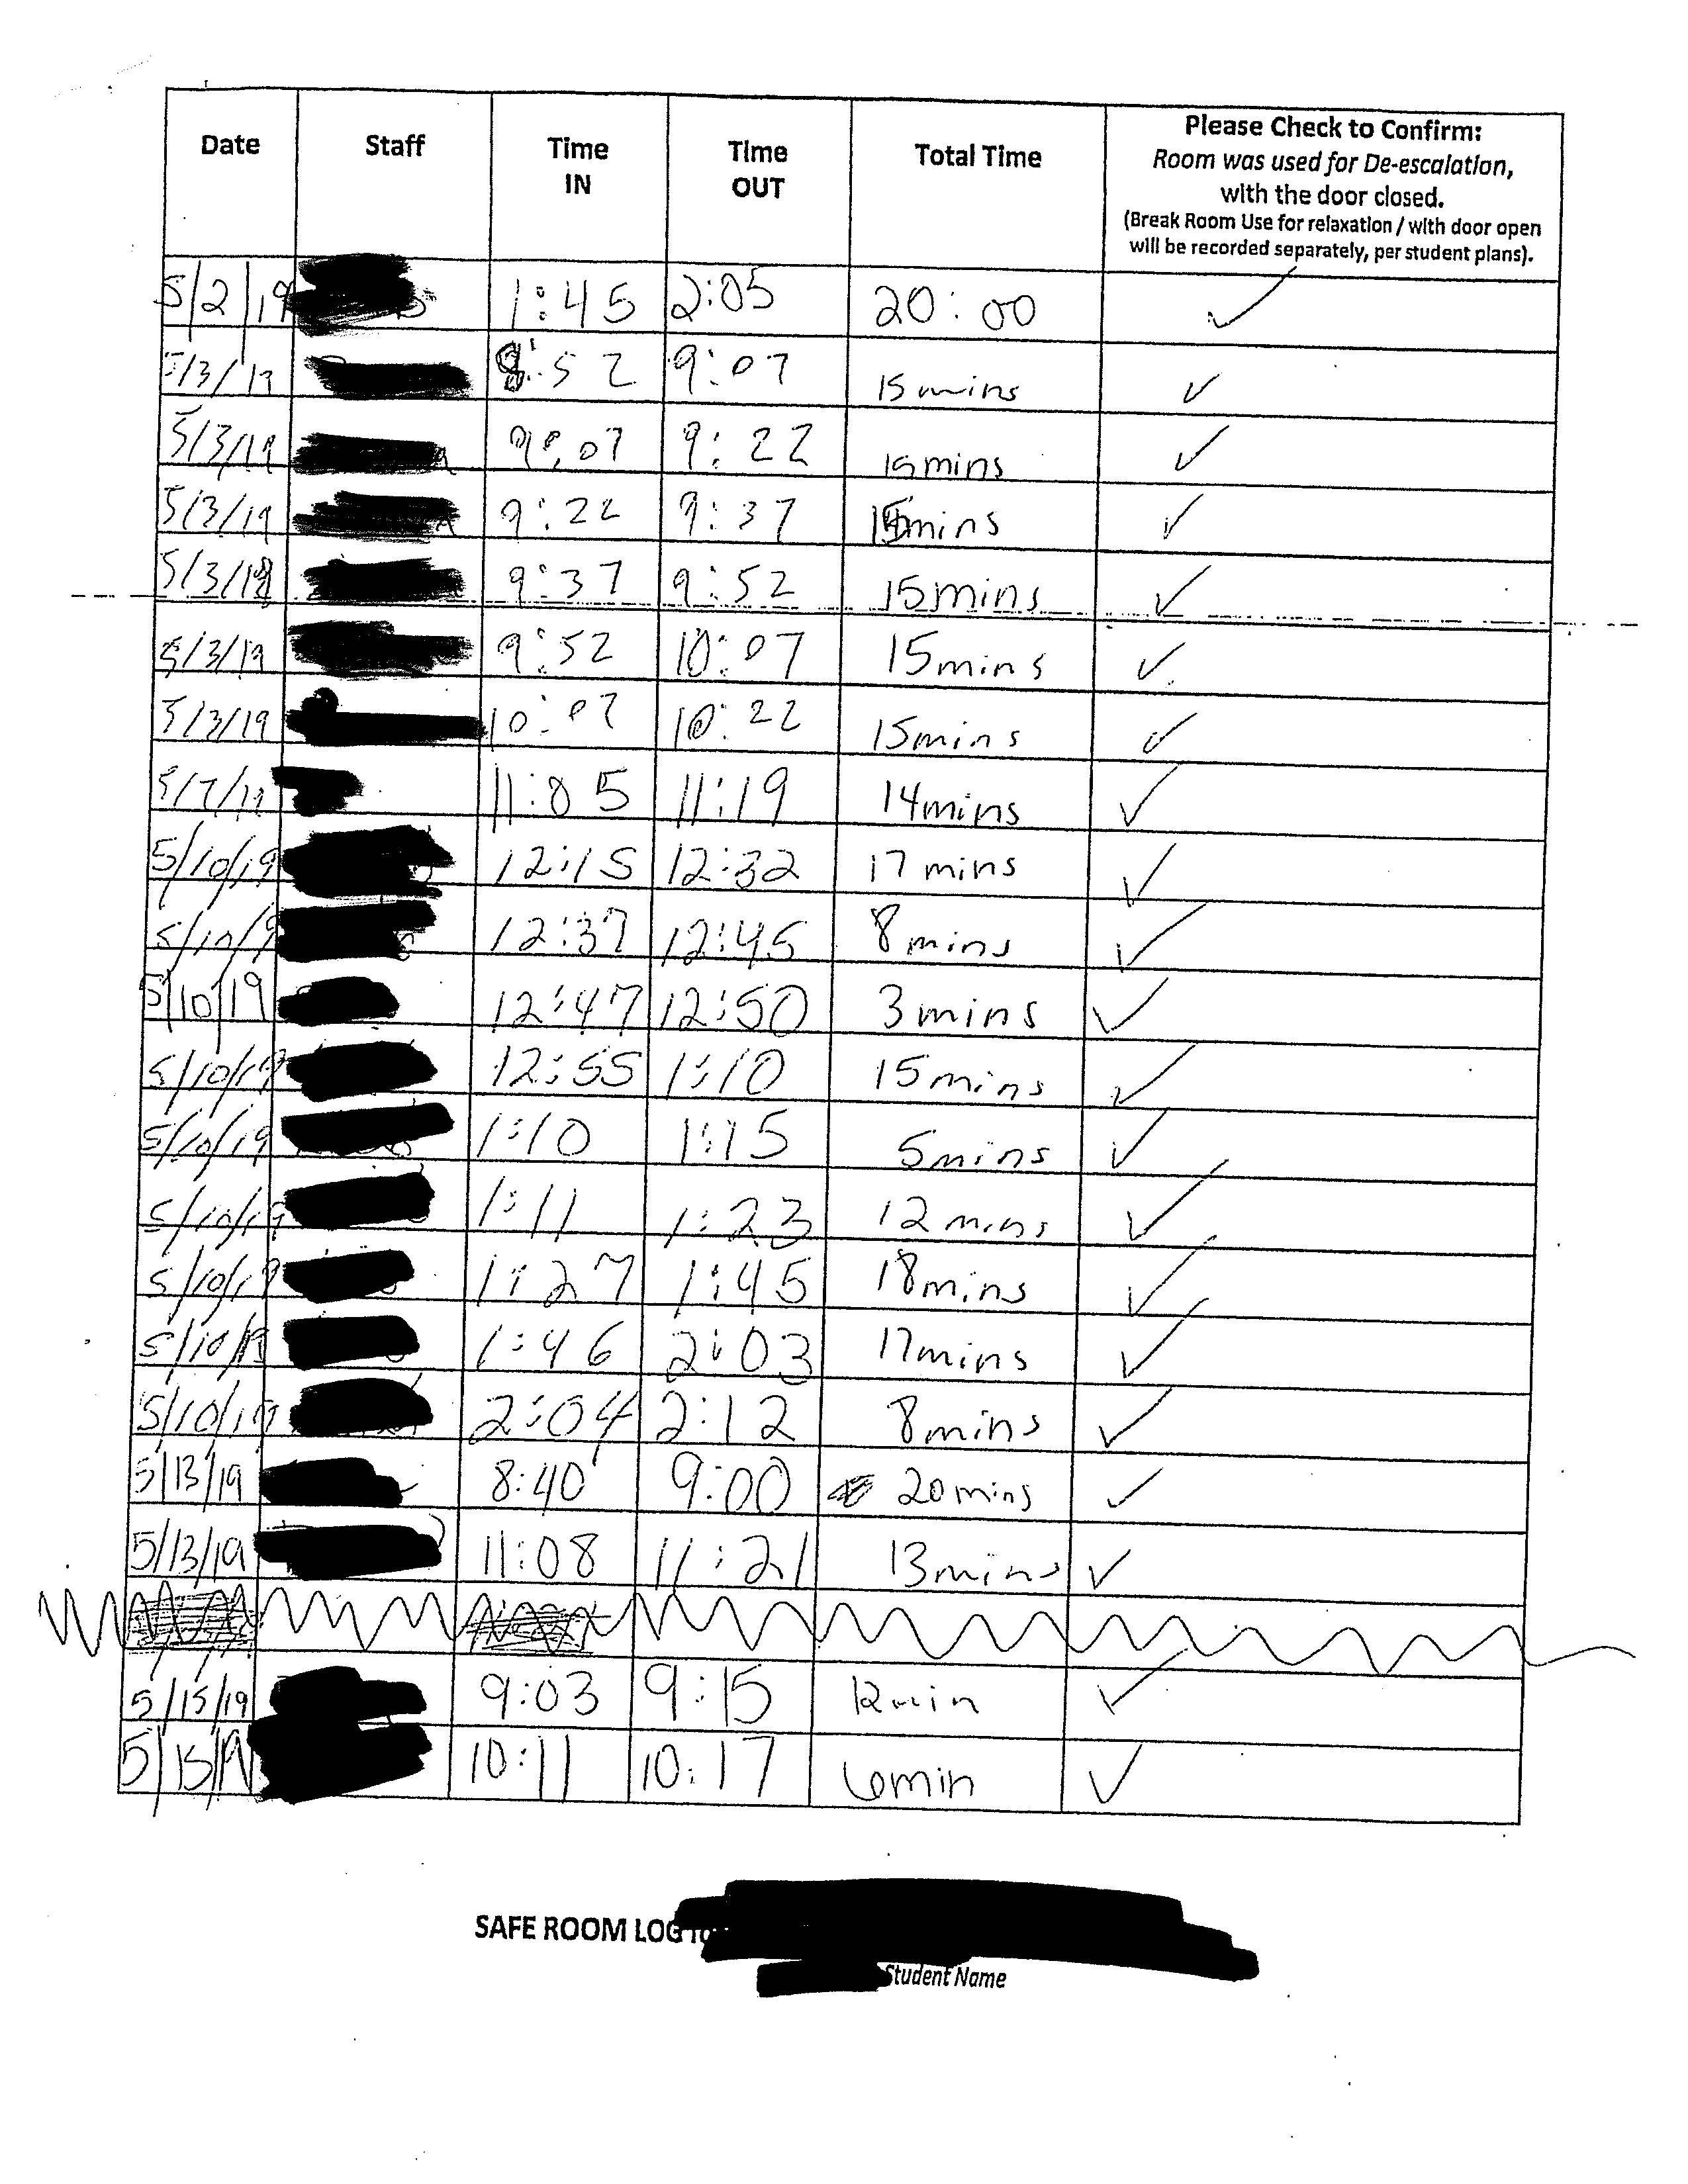 Date Staff Time IN Time OUT Total Time Please Check to Confirm:
Room was used for De-escalation,
with the door closed.
(Break Room Use for relaxation / with door open
will be recorded separately, per student plans).
5/2/19 1:45 2:05 20:00 ✓
5/3/19 8:52 9:07 15mins ✓
5/3/19 9:07 9:22 15mins ✓
5/3/19 9:22 9:37 15mins ✓
5/3/19 9:37 9:52 15mins ✓
5/3/19 9:52 10:07 15mins ✓
5/3/19 10:07 10:22 15mins ✓
5/7/19 11:05 11:19 14mins ✓
5/10/19 12:15 12:32 17 mins ✓
5/10/19 12:37 12:45 8 mins ✓
5/10/19 12:47 12:50 3 mins ✓
5/10/19 12:55 1:10 15 mins ✓
5/10/19 1:10 1:15 5mins ✓
5/10/19 1:11 1:23 12 mins ✓
5/10/19 1:27 1:45 18mins ✓
5/10/19 1:46 2:03 17mins ✓
5/10/19 2:04 2:12 8mins ✓
5/13/19 8:40 9:00 20mins ✓
5/13/19 11:08 11:21 13mins ✓
5/15/19 9:03 9:15 12min ✓
5/15/19 10:11 10:17 6min ✓
SAFE ROOM LOG for
Student Name